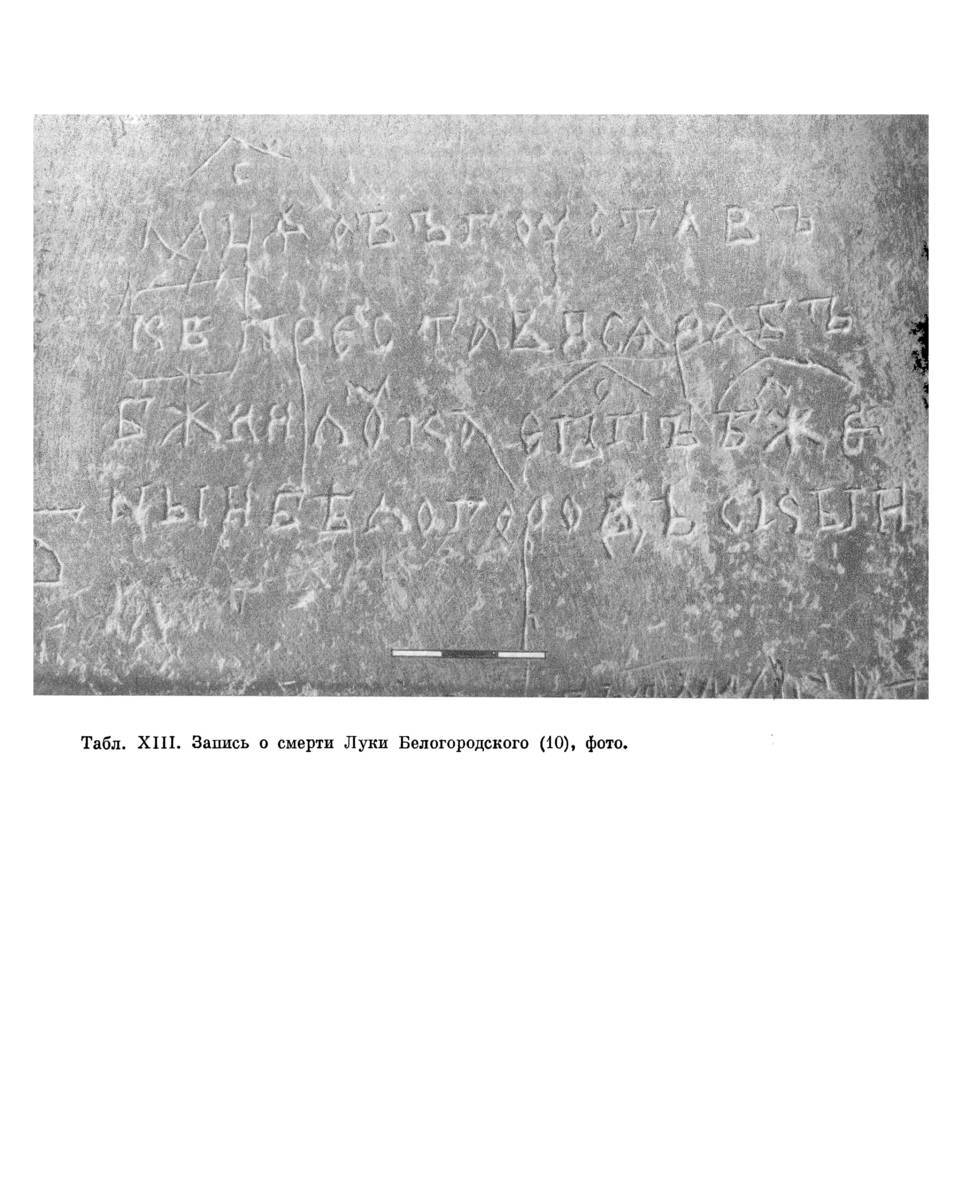 мⷭ҇ца овъгоуставъ
кв прѣставися рабъ
бж҃ии лꙋка епⷭ҇пъ блⷤ҇же
ныи бѣлогородъскыи
Табл. XIII. Запись о смерти Луки Белогородского (10), фото.